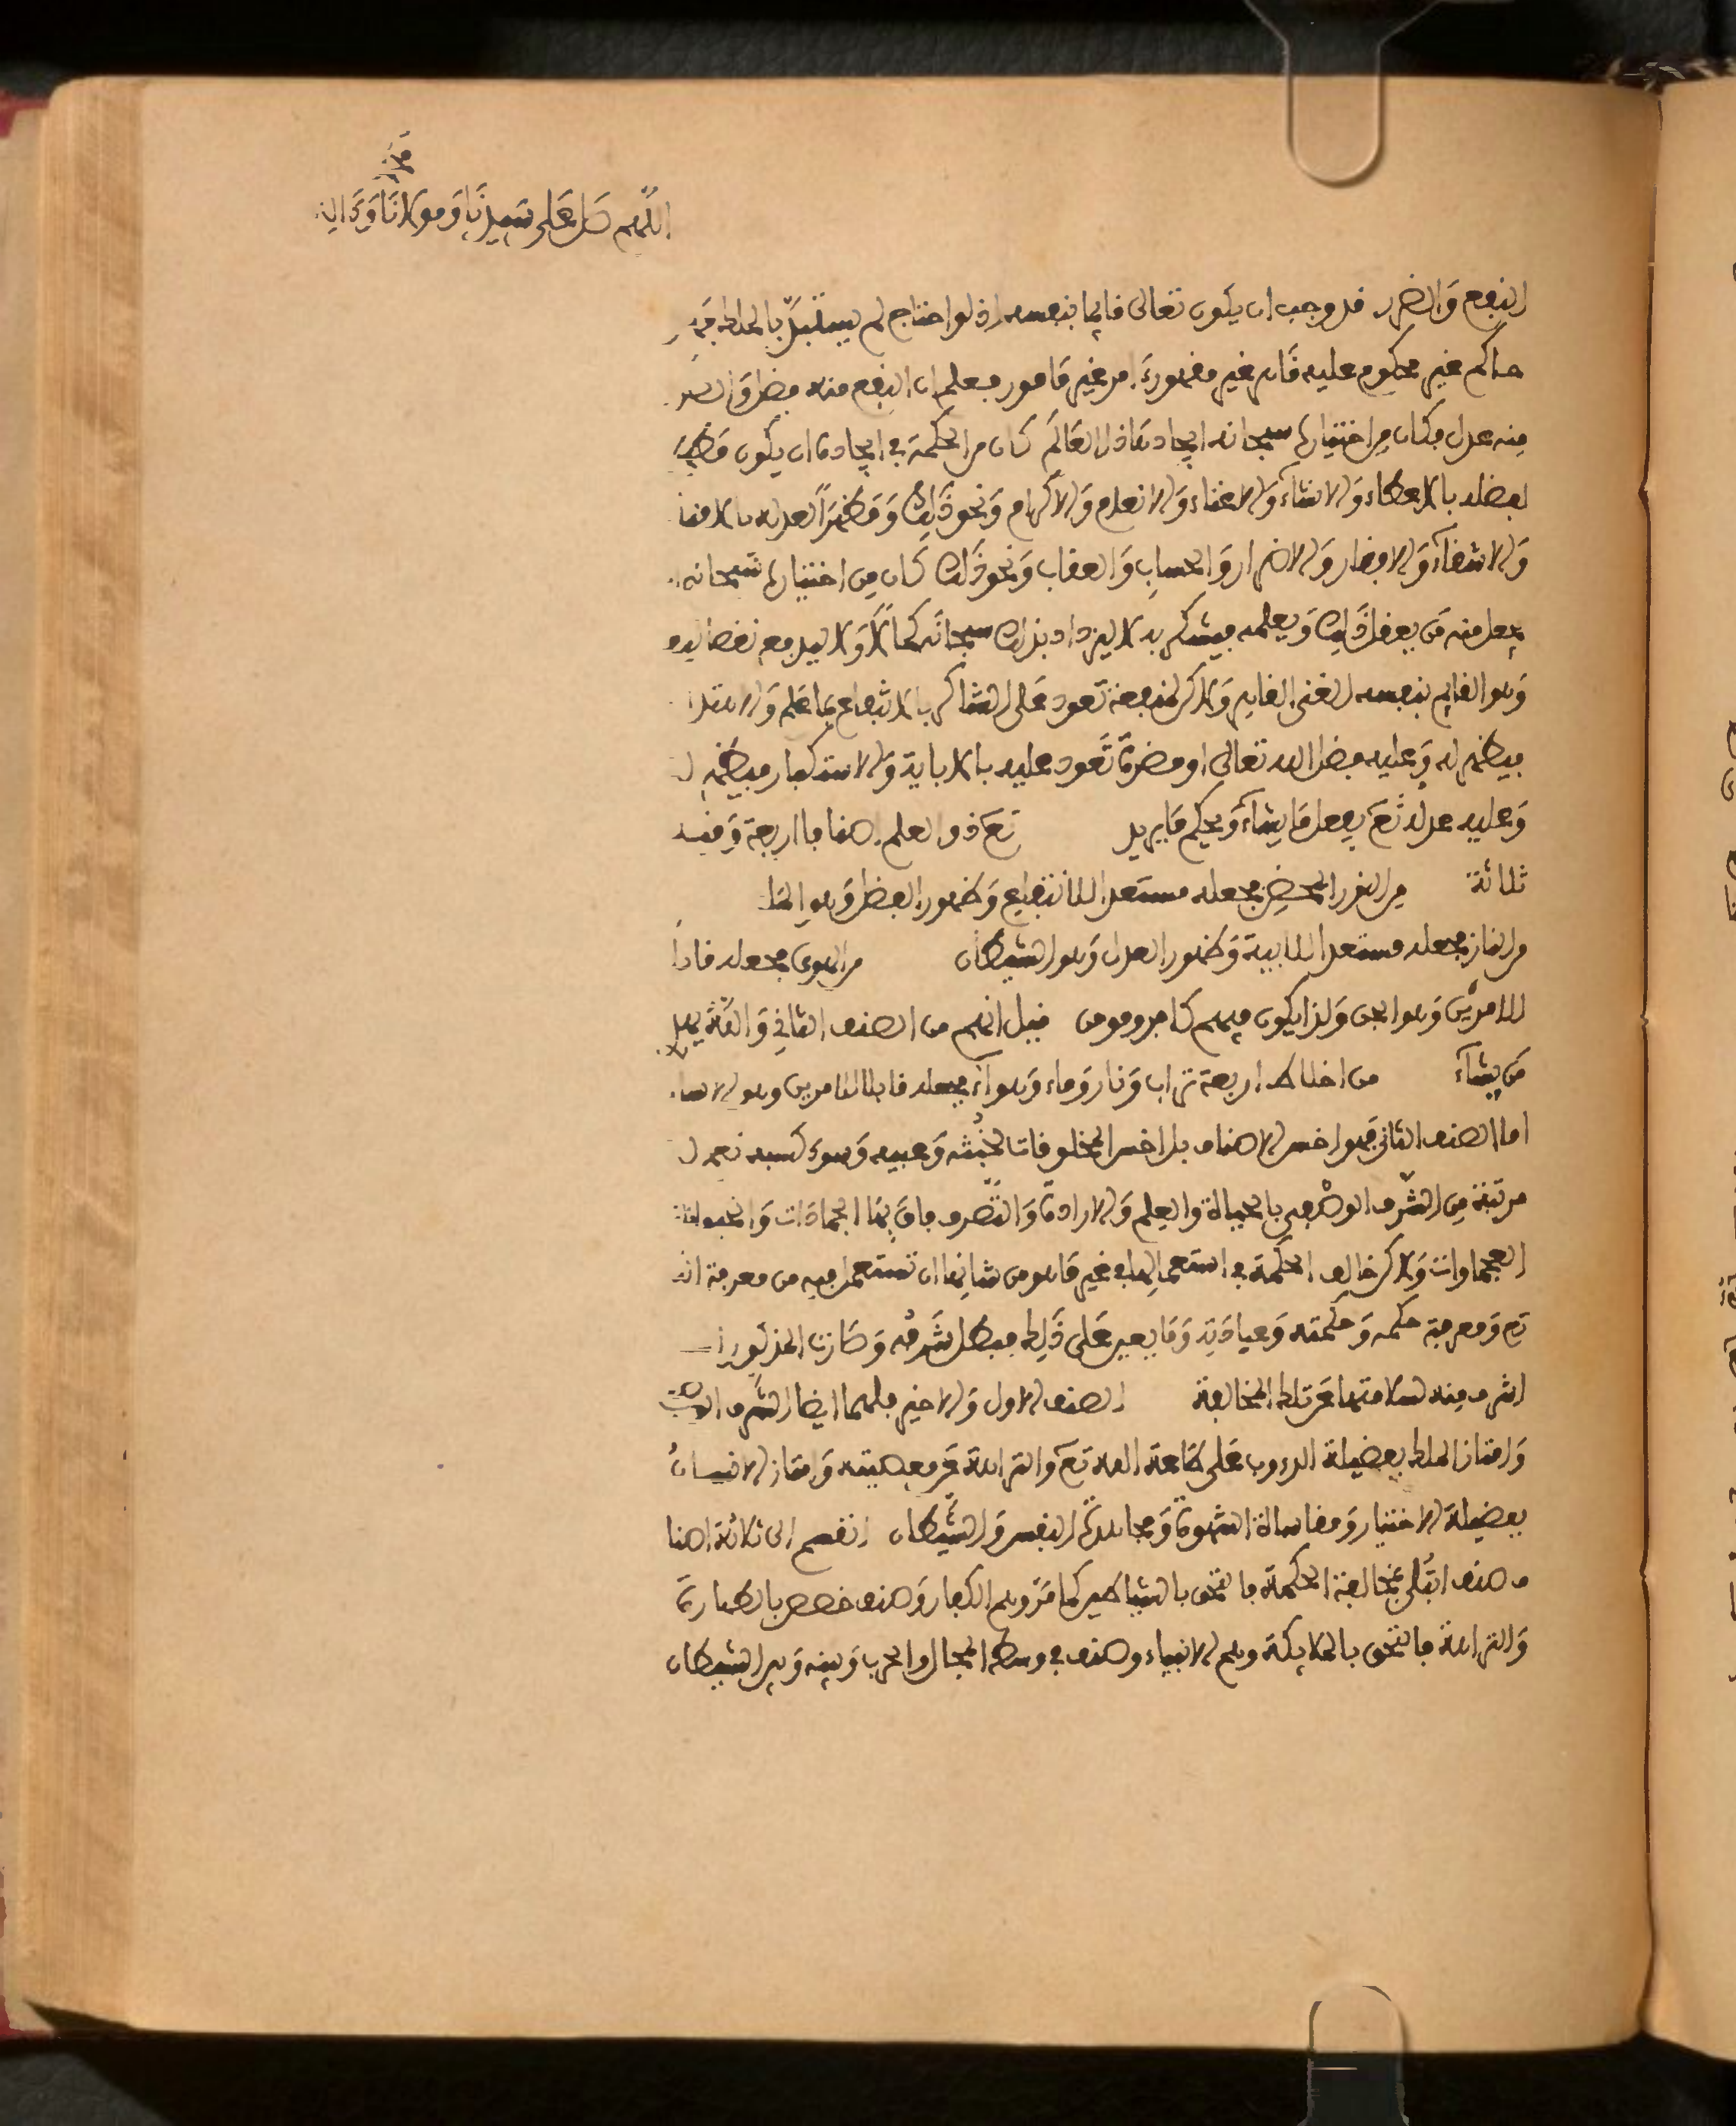 اللهم صل على سيدنا ومولانا
النفع والضر فوجب ان يكون تعالى قائما بنفسه اذ لو احتاج لم يستبد بالملك
حاكم غير محكوم عليه غير مقهور امر غير مامور فعلم ان النفع منه فضل
منه عدل فكان من اختياره سبحانه ايجاد هاذا العالم كان من الحكمة في ايجاده ان يكون
لفضله بالاعطاء والانشاء والاغناء والانعام والاكرام ونحو ذلك ومظهرا لعدله
والاشقاء والافقار والاضرار والحساب والعقاب ونحو ذلك كان من اختياره سبحانه
يجعل منه من يعقل ذلك ويعلمه فيشكر به لا ليزداد بذلك سبحانه كمالا ولا ليدفع نقصا
وهو القائم بنفسه الغني القايم ولاكن لمنفعة تعود على الشاكر بالانتفاع بما علم
فيظهر له وعليه فضل الله تعالى او مضرة تعود عليه بالاباية والاستكبار فيظهر
وعليه عدله تع يفعل ما يشاء ويحكم ما يريد تع ذو العلم اصنافا اربعة
ثلاثة من النور المحض فجعله مستعدا للانتفاع وظهور الفضل وهو
من النار فجعله مستعدا للابية وظهور العدل وهو الشيطان من الهوى فجعله
للامرين وهو الجن ولذا يكون منهم كافر ومومن فيل انهم من الصنف الثاني والله يهد
من يشاء من اخلاط اربعة تراب ونار وماء وهواء فجعله قابلا للامرين وهو
اما الصنف الثاني فهو اخس الاصناف بل اخس المخلوقات لخبثه وعيبه وسوء كسبه
مرتبة من الشرف الوصفي بالحياة والعلم والارادة والتصرف بها الجمادات
العجماوات ولاكن خالف الحكمة في استعمالها في غير ما هو من شانها ان تستعمل فيه من معرفة
تع ومعرفة حكمه وحكمته وعبادته وما يعين على ذلك فبطل شرفه وصارت المذكورات
اشرف منه لسلامتها عن تلك المخالفة الصنف الاول والاخير فلهما ايضا الشرف
وامتاز الملك بفضيلة الدءوب على طاعة الله تع والنزاهة عن معصيته وامتاز الانسان
بفضيلة الاختيار ومقاساة الشهوة ومجاهدة النفس والشيطان انقسم الى ثلاثة اصنا
ف صنف ابتلي بمخالفة الحكمة فالتحق بالشياطين كما مر وهم الكفار وصنف خصص بالطهارة
والنزاهة فالتحق بالملايكة وهم الانبياء وصنف في وسط المجال والحرب بينه وبين الشيطان